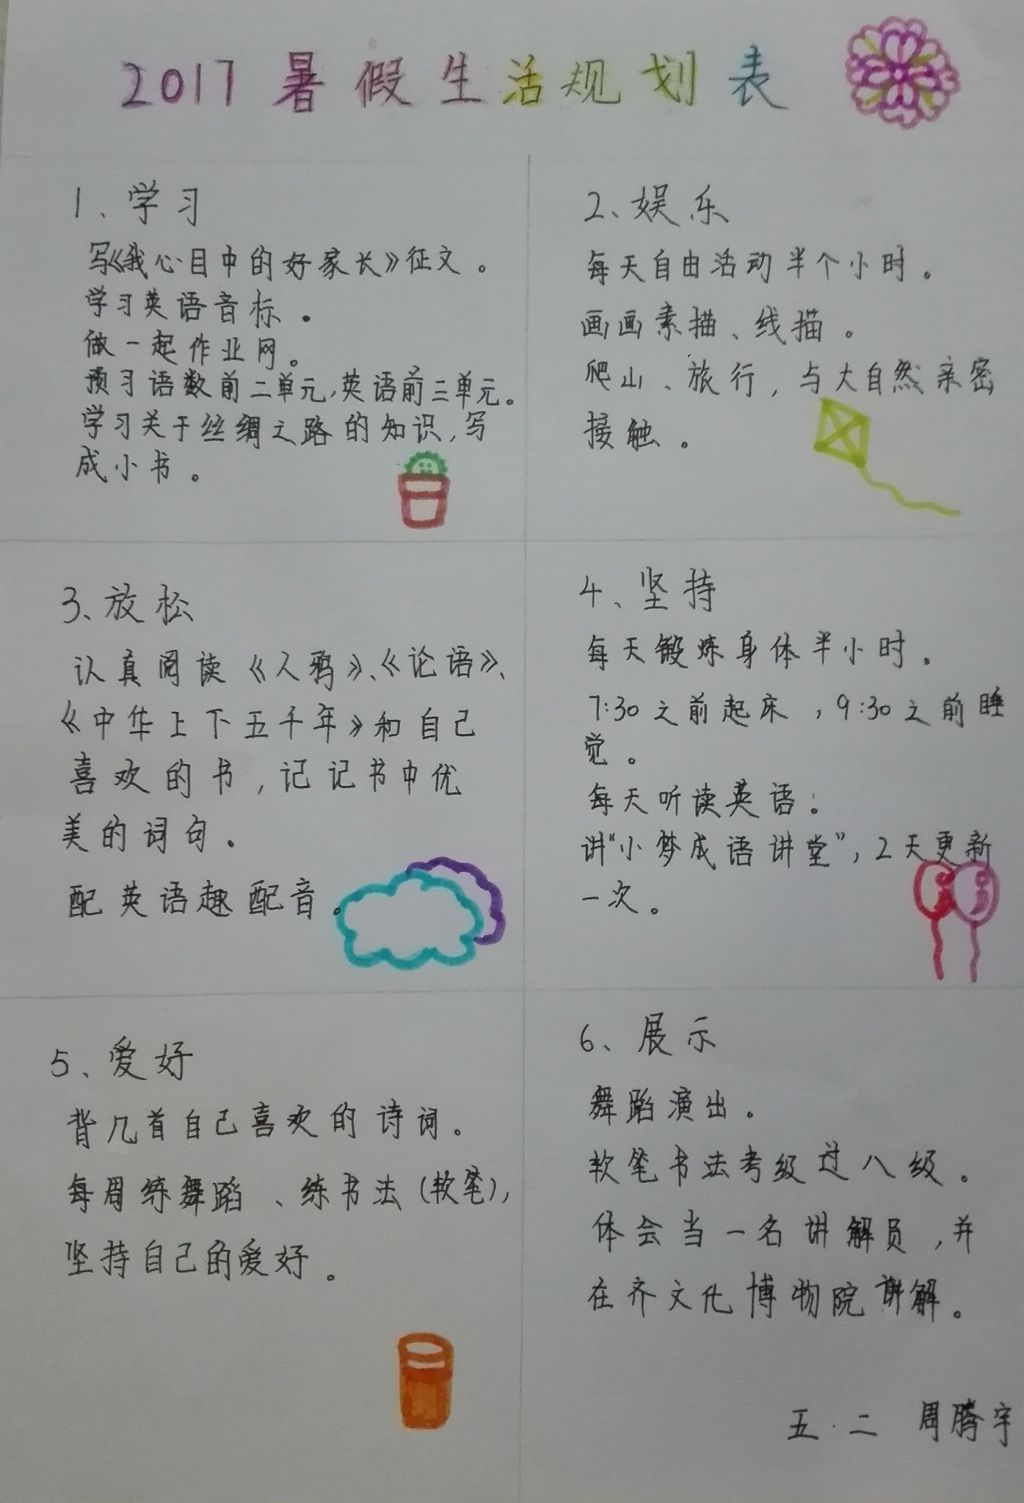 2017暑假生活规划表
1、学习
写《我心目中的好家长》征文。
学习英语音标。
做一起作业网。
预习语数前二单元,英语前三单元。
学习关于丝绸之路的知识,写
成小书。
2、娱乐
每天自由活动半个小时。
画画素描、线描。
爬山、旅行,与大自然亲密
接触。
3、放松
认真阅读《人鸦》、《论语》、
《中华上下五千年》和自己
喜欢的书,记记书中优
美的词句。
配英语趣配音。
4、坚持
每天锻炼身体半小时。
7:30之前起床,9:30之前睡
觉。
每天听读英语。
讲“小梦成语讲堂”,2天更新
一次。
5、爱好
背几首自己喜欢的诗词。
每周练舞蹈、练书法(软笔),
坚持自己的爱好。
6、展示
舞蹈演出。
软笔书法考级过八级。
体会当一名讲解员,并
在齐文化博物院讲解。
五·二 周腾宇